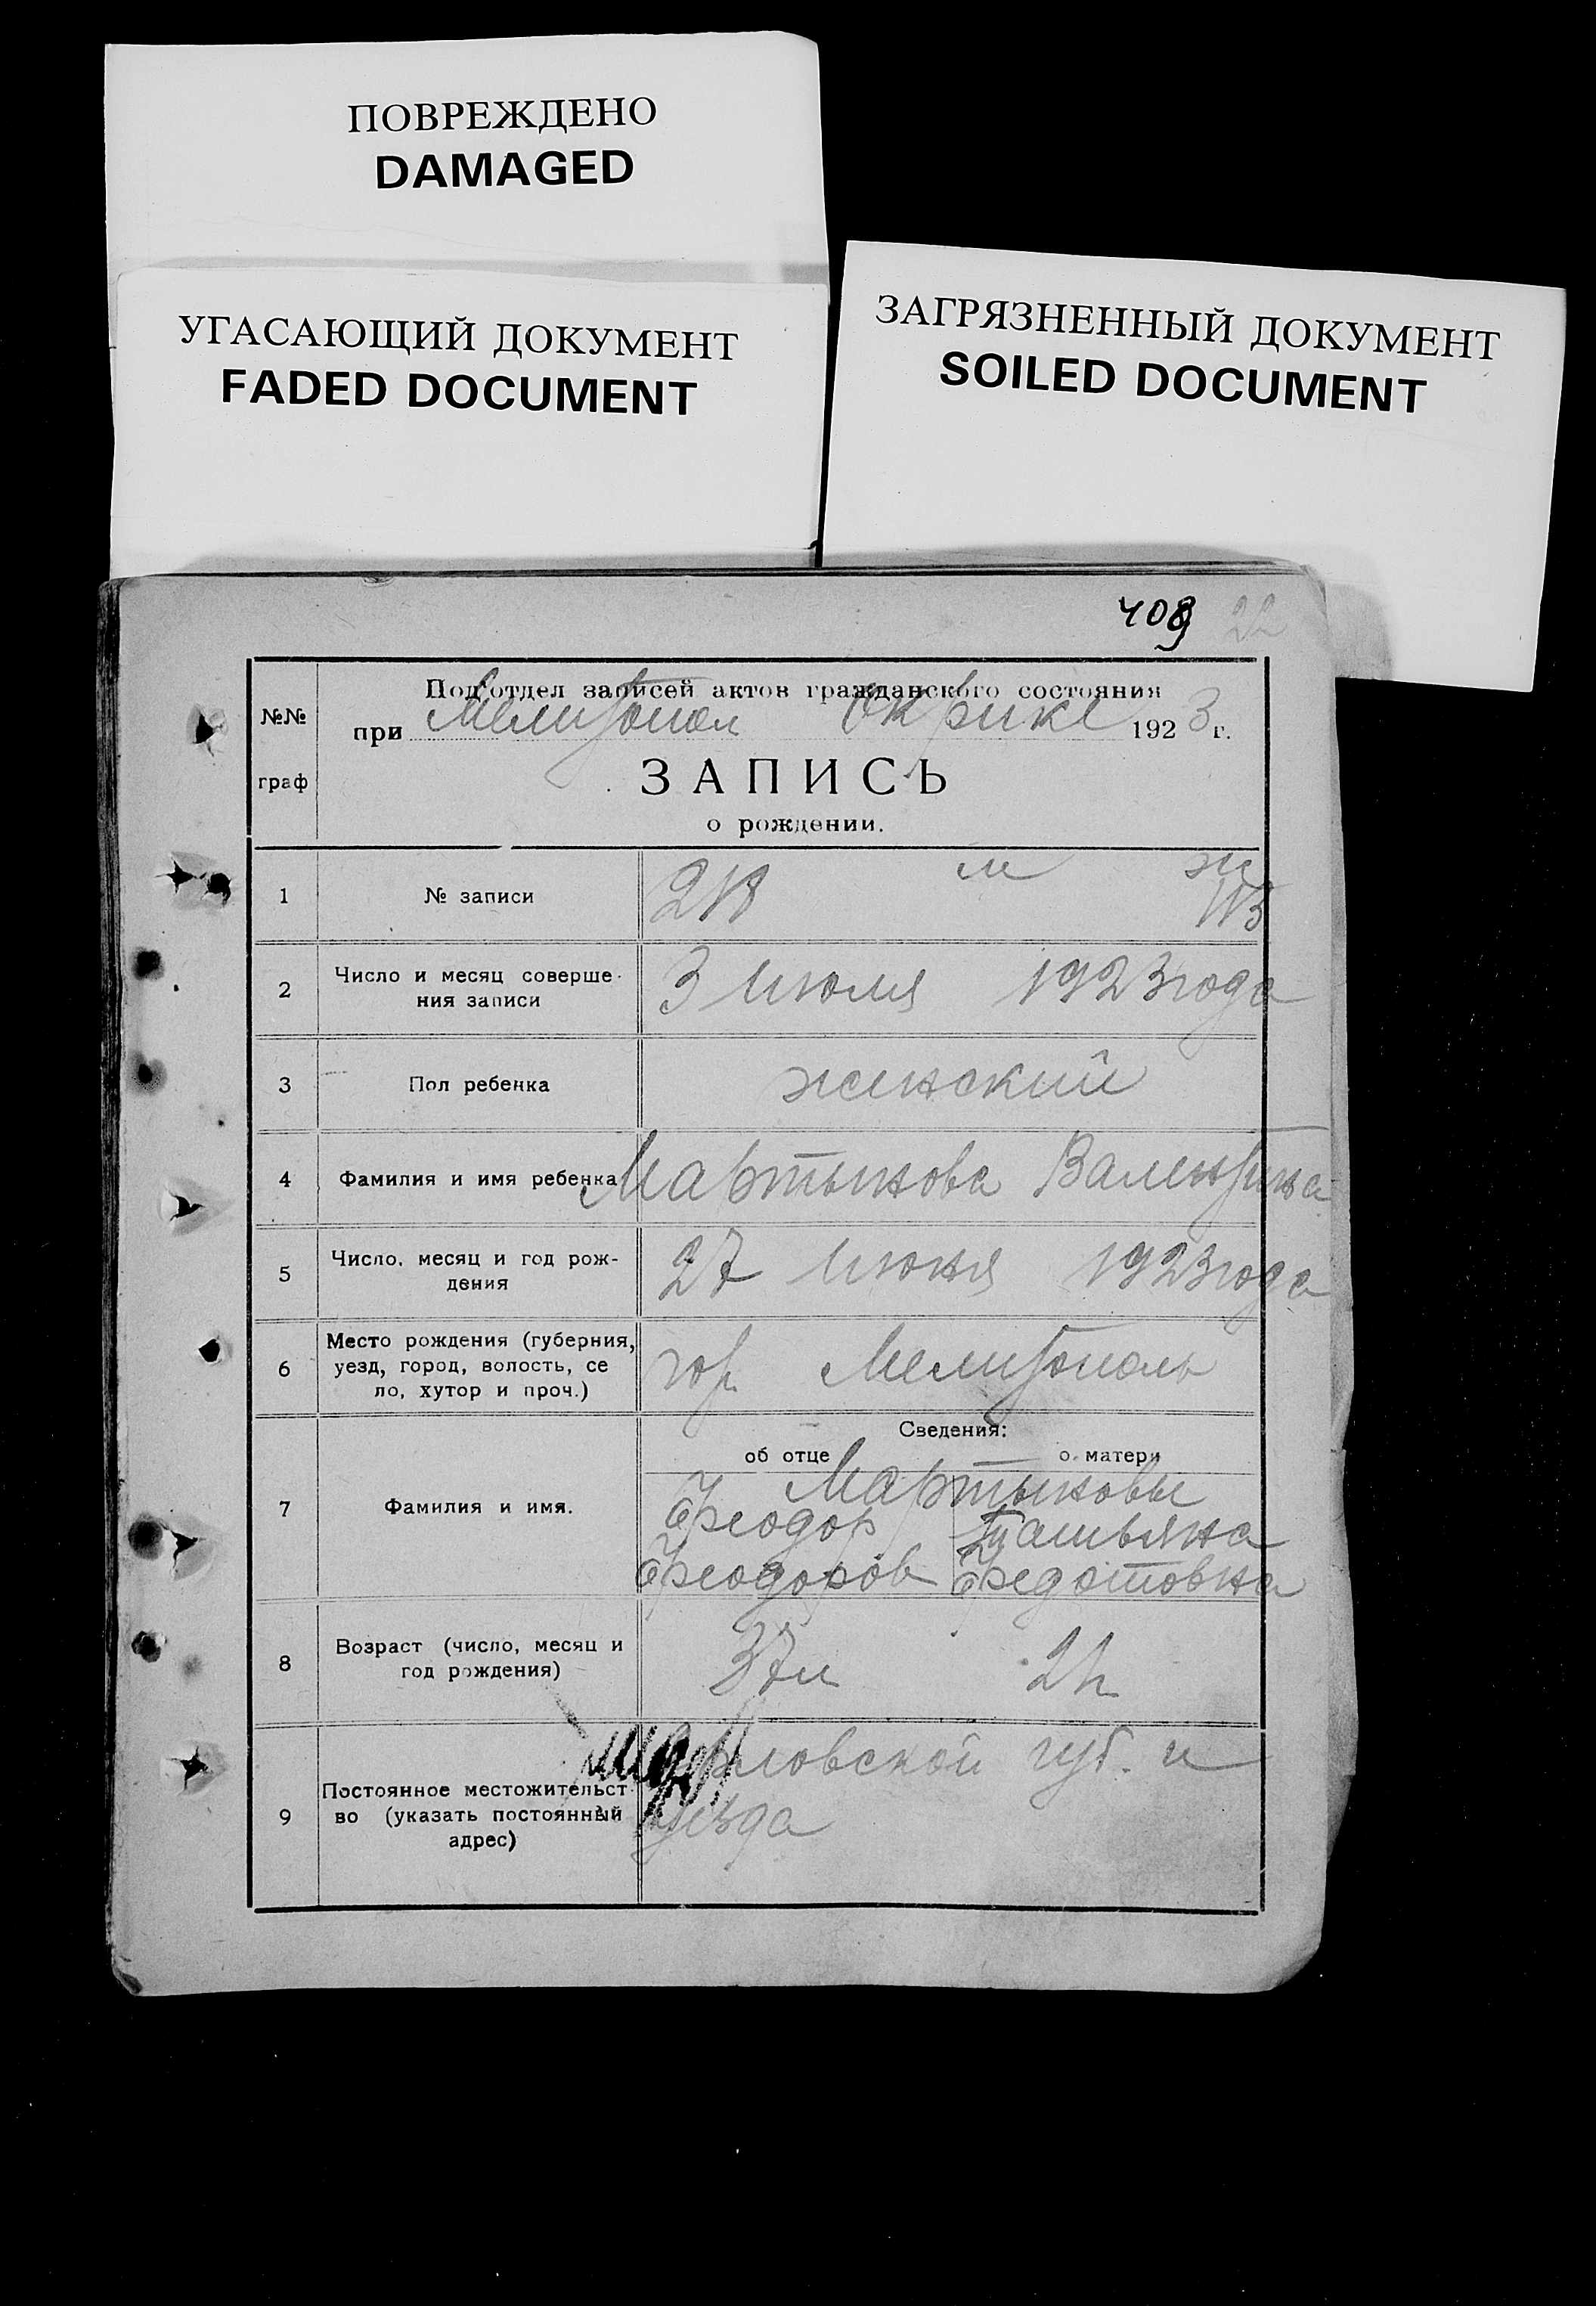 ПОВРЕЖДЕНО
DAMAGED
УГАСАЮЩИЙ ДОКУМЕНТ
FADED DOCUMENT
ЗАГРЯЗНЕННЫЙ ДОКУМЕНТ
SOILED DOCUMENT
409 22
№№
граф
Под'отдел записей актов гражданского состояния
при Мелитопол 1923 г.
ЗАПИСЬ
о рождении.
1 № записи м ж
2 Число и месяц соверше-
ния записи
3 Июля 1923 года
3 Пол ребенка женский
4 Фамилия и имя ребенка Мартынова Валентина
5 Число, месяц и год рож-
дения
27 Июня 1923 года
6 Место рождения (губерния,
уезд, город, волость, се
ло, хутор и проч.)
гор. Мелитополь
Сведения:
об отце о матери
7 Фамилия и имя.
Мартыновы
Феодор Татьяна
Феодоров Федотовна
8 Возраст (число, месяц и
год рождения)
37 л 21
9 Постоянное местожительст-
во (указать постоянный
адрес)
Орловской губ. и
уезда